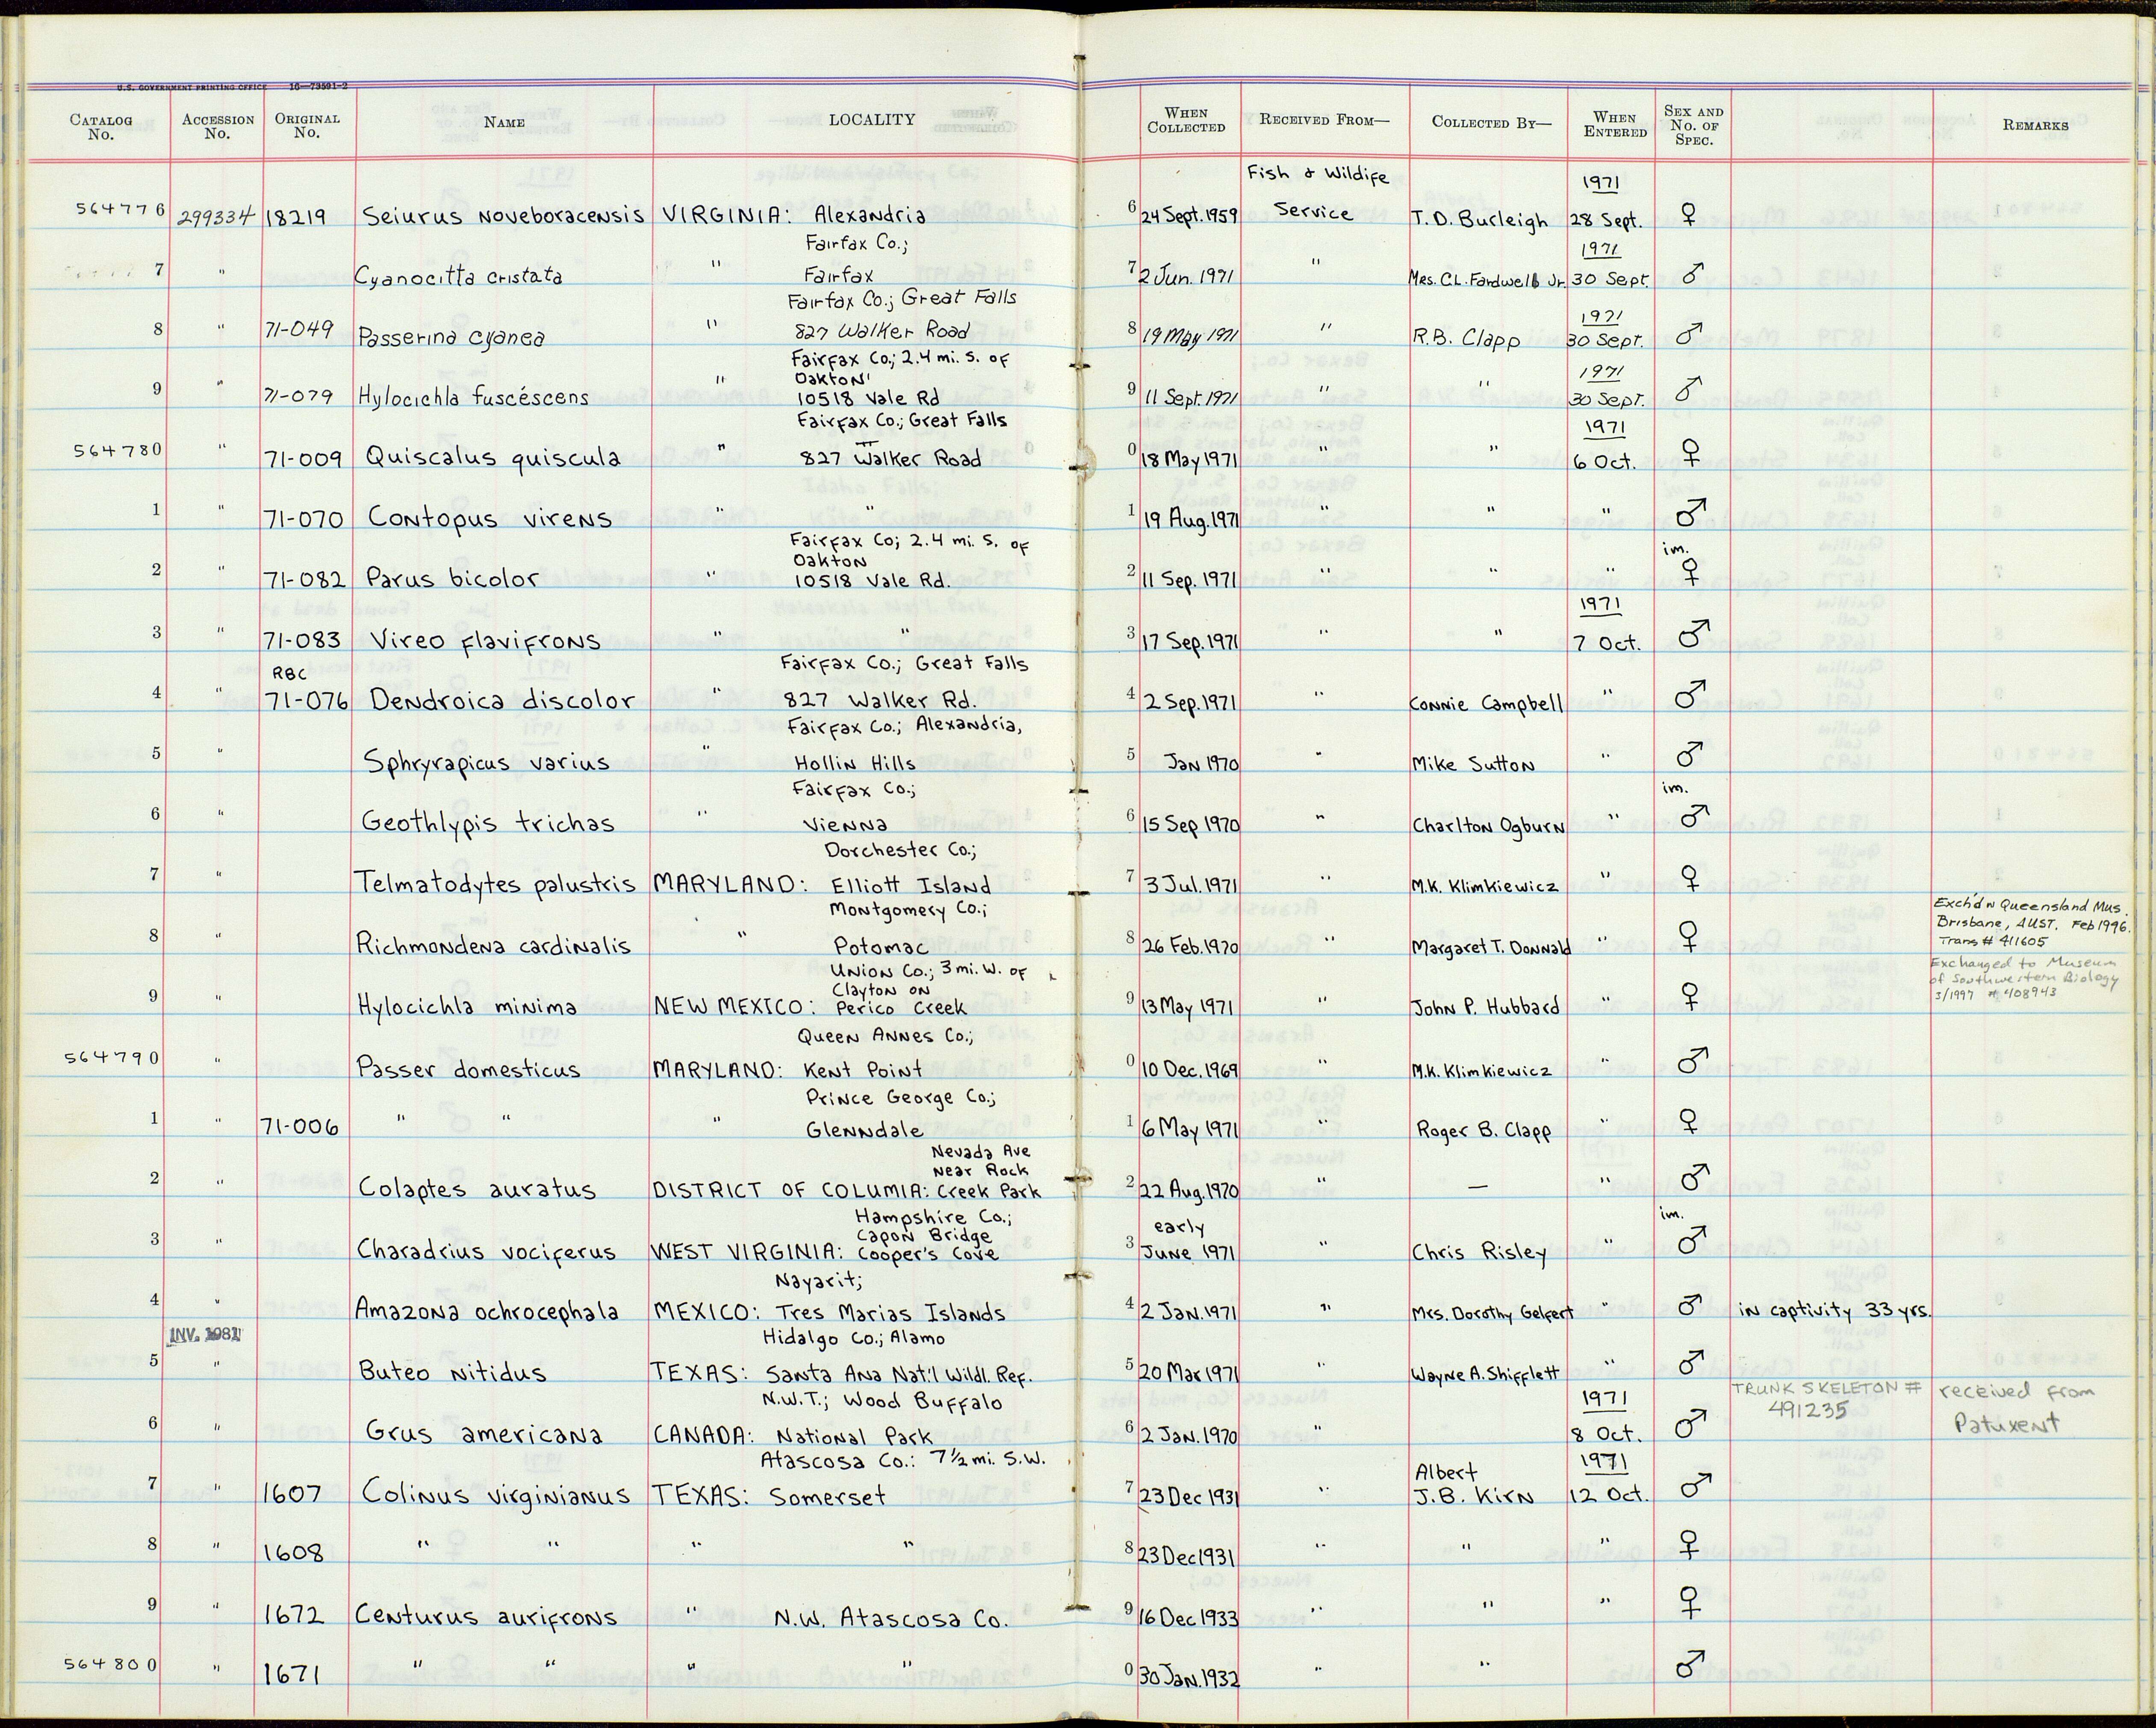 U.S. GOVERNMENT PRINTING OFFICE 16—73591-2
CATALOG No. ACCESSION No. ORIGINAL No. NAME LOCALITY WHEN COLLECTED RECEIVED FROM— COLLECTED BY— WHEN ENTERED SEX AND No. OF SPEC. REMARKS
Fish & Wildife 1971
564776 299334 18219 Seiurus noveboracensis VIRGINIA: Alexandria 6 24 Sept. 1959 Service T. D. Burleigh 28 Sept. ♀
Fairfax Co.; 1971
7 " Cyanocitta cristata " Fairfax 7 2 Jun. 1971 " Mrs. C.L. Fardwell Jr. 30 Sept. ♂
Fairfax Co.; Great Falls 1971
8 " 71-049 Passerina cyanea " 827 Walker Road 8 19 May 1971 " R.B. Clapp 30 Sept. ♂
Fairfax Co; 2.4 mi. S. of
Oakton 1971
9 " 71-079 Hylocichla fuscéscens " 10518 Vale Rd 9 11 Sept. 1971 " " 30 Sept. ♂
Fairfax Co.; Great Falls 1971
564780 " 71-009 Quiscalus quiscula " 827 Walker Road 0 18 May 1971 " " 6 Oct. ♀
1 " 71-070 Contopus virens " " 1 19 Aug. 1971 " " " ♂
Fairfax Co; 2.4 mi. S. of im.
Oakton
2 " 71-082 Parus bicolor " 10518 Vale Rd. 2 11 Sep. 1971 " " " ♀
1971
3 " 71-083 Vireo flavifrons " " 3 17 Sep. 1971 " " 7 Oct. ♂
RBC Fairfax Co.; Great Falls
4 " 71-076 Dendroica discolor " 827 Walker Rd. 4 2 Sep. 1971 " Connie Campbell " ♂
Fairfax Co.; Alexandria,
5 " Sphryrapicus varius " Hollin Hills 5 Jan 1970 " Mike Sutton " ♂
Fairfax Co.; im.
6 " Geothlypis trichas " Vienna 6 15 Sep 1970 " Charlton Ogburn " ♂
Dorchester Co.;
7 " Telmatodytes palustris MARYLAND: Elliott Island 7 3 Jul. 1971 " M.K. Klimkiewicz " ♀
Montgomery Co.; Exch'd n Queensland Mus.
Brisbane, AUST. Feb 1996.
8 " Richmondena cardinalis " Potomac 8 26 Feb. 1970 " Margaret T. Donnald " ♀ Trans # 411605
Union Co.; 3 mi. W. of Exchanged to Museum
Clayton on of Southwestern Biology
9 " Hylocichla minima NEW MEXICO: Perico Creek 9 13 May 1971 " John P. Hubbard " ♀ 3/1997 # 408943
Queen Annes Co.;
564790 " Passer domesticus MARYLAND: Kent Point 0 10 Dec. 1969 " M.K. Klimkiewicz " ♂
Prince George Co.;
1 " 71-006 " " " Glenndale 1 6 May 1971 " Roger B. Clapp " ♀
Nevada Ave
near Rock
2 " Colaptes auratus DISTRICT OF COLUMIA: Creek Park 2 22 Aug. 1970 " — " ♂
Hampshire Co.; im.
Capon Bridge early
3 " Charadrius vociferus WEST VIRGINIA: Cooper's Cove 3 June 1971 " Chris Risley " ♂
Nayarit;
4 " Amazona ochrocephala MEXICO: Tres Marias Islands 4 2 Jan. 1971 " Mrs. Dorothy Gelfert " ♂ in captivity 33 yrs.
INV. 1981 Hidalgo Co.; Alamo
5 " Buteo nitidus TEXAS: Santa Ana Nat.'l Wildl. Ref. 5 20 Mar 1971 " Wayne A. Shifflett " ♂
N.W.T.; Wood Buffalo 1971 TRUNK SKELETON # 491235 received from
6 " Grus americana CANADA: National Park 6 2 Jan. 1970 " 8 Oct. ♂ Patuxent
Atascosa Co.: 7½ mi. S.W. Albert 1971
7 " 1607 Colinus virginianus TEXAS: Somerset 7 23 Dec 1931 " J.B. Kirn 12 Oct. ♂
8 " 1608 " " " " 8 23 Dec 1931 " " " ♀
9 " 1672 Centurus aurifrons " N.W. Atascosa Co. 9 16 Dec 1933 " " " ♀
564800 " 1671 " " " " 0 30 Jan. 1932 " " ♂